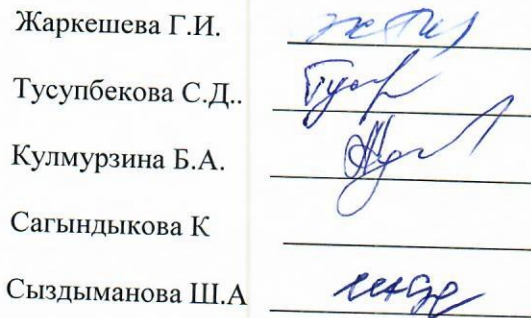 Жаркешева Г.И.
Тусупбекова С.Д..
Кулмурзина Б.А.
Сагындыкова К
Сыздыманова Ш.А